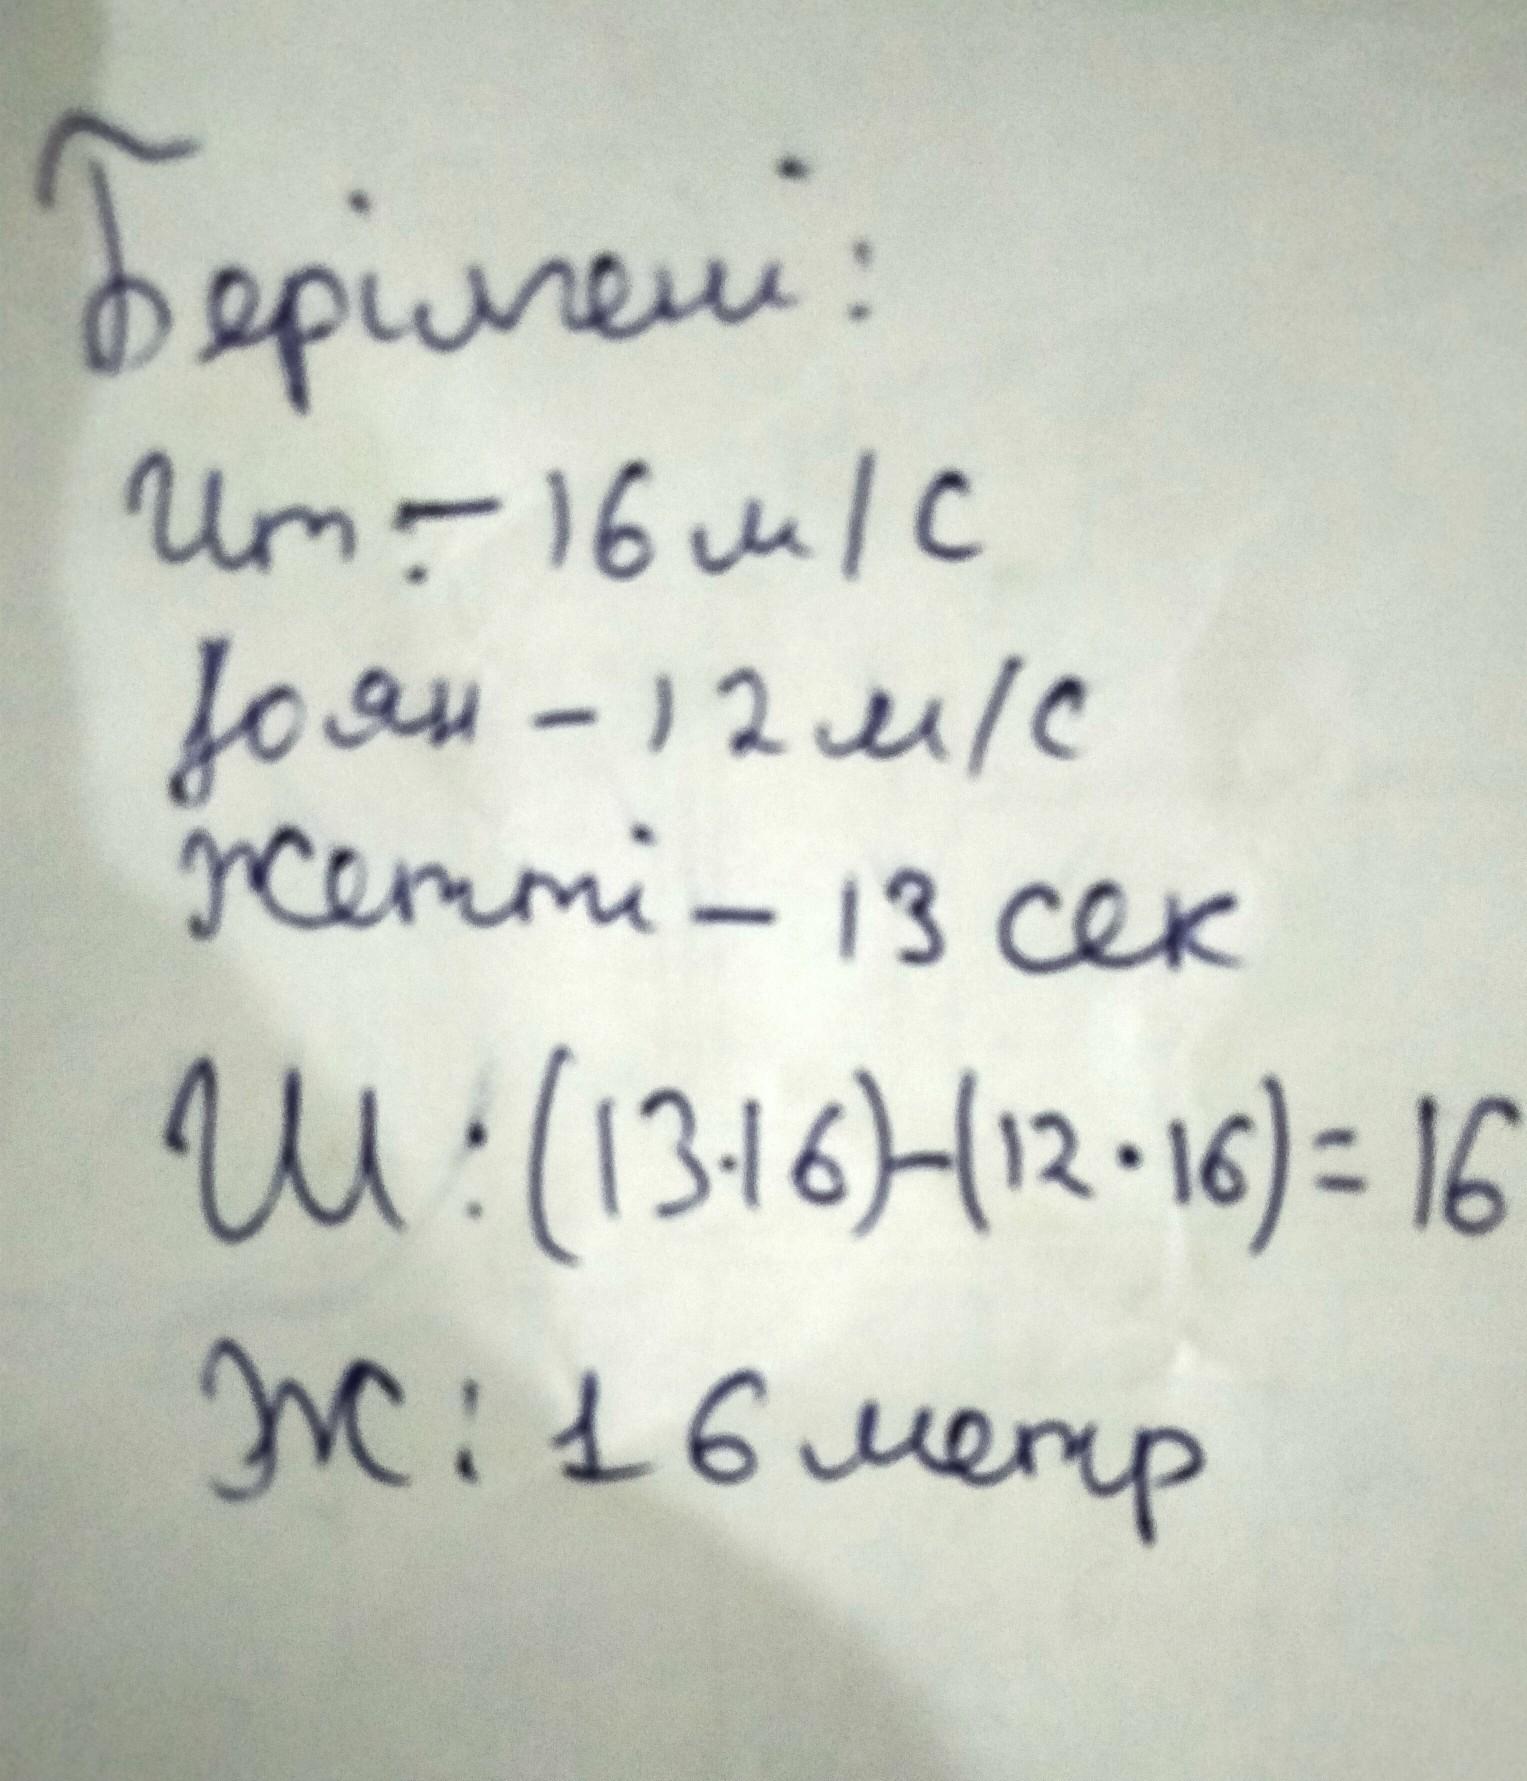 Берілгені:
Ит:-16 м/с
Қоян-12 м/с
Жетті-13 сек
Ш:(13·16)-(12·16)=16
Ж:16 метр